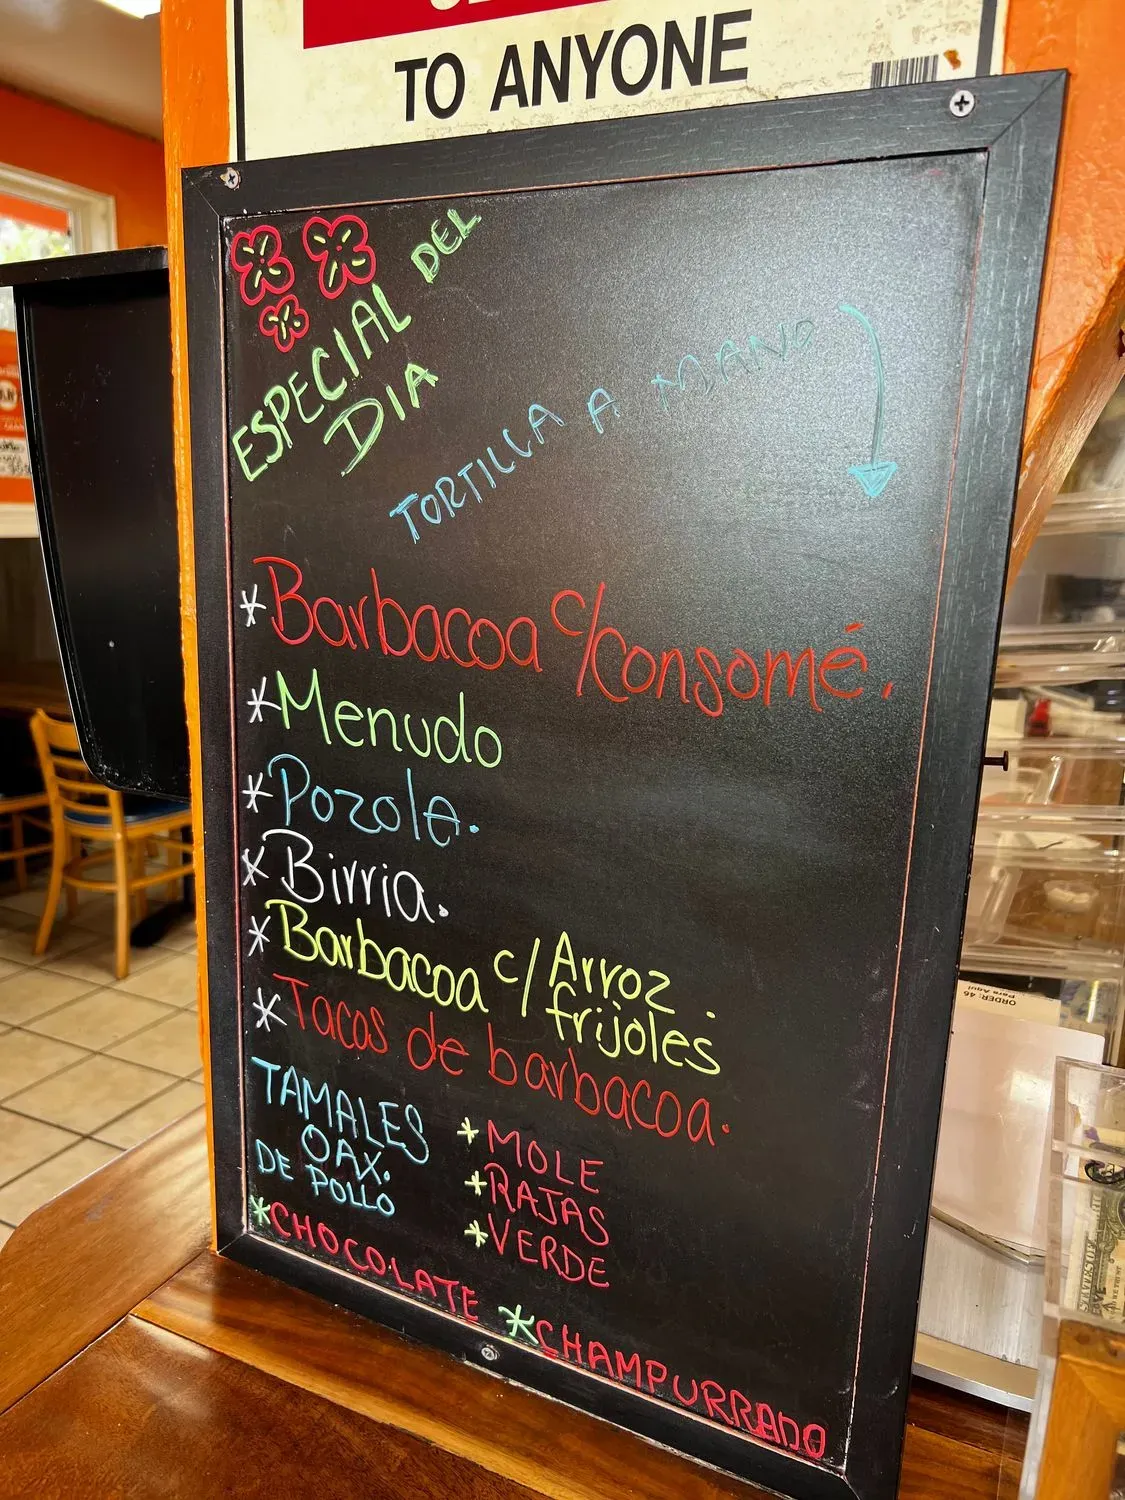 TO ANYONE
ESPECIAL DEL
DIA
TORTILLA A MANO
*Barbacoa c/consomé.
*Menudo
*Pozole.
*Birria.
*Barbacoa c/Arroz.
frijoles
*Tacos de barbacoa.
TAMALES
OAX.
DE POLLO
*MOLE
*RAJAS
*VERDE
*CHOCOLATE *CHAMPURRADO
ORDER: 46
Para Aqui